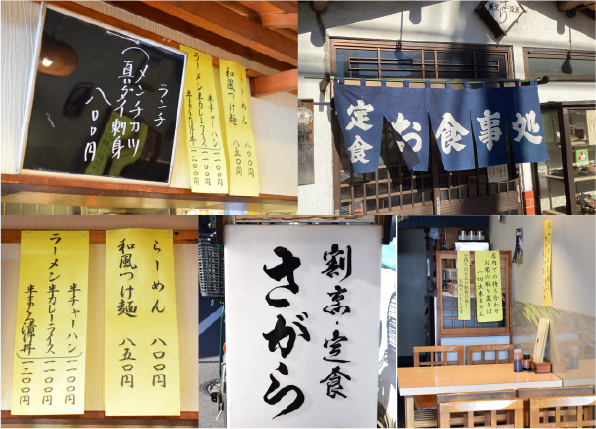 ランチ
メンチカツ
真ダイ刺身
八〇〇円
らーめん 八〇〇円
和風つけ麺 八五〇円
半チャーハン 一一〇〇円
ラーメン半カレーライス 一一〇〇円
定食
お食事処
らーめん 八〇〇円
和風つけ麺 八五〇円
半チャーハン 一一〇〇円
ラーメン半カレーライス 一一〇〇円
半まぐろ漬丼 一二〇〇円
割烹・定食
さがら
店内での待ち合わせ
お席の取り置きは
一切出来ません